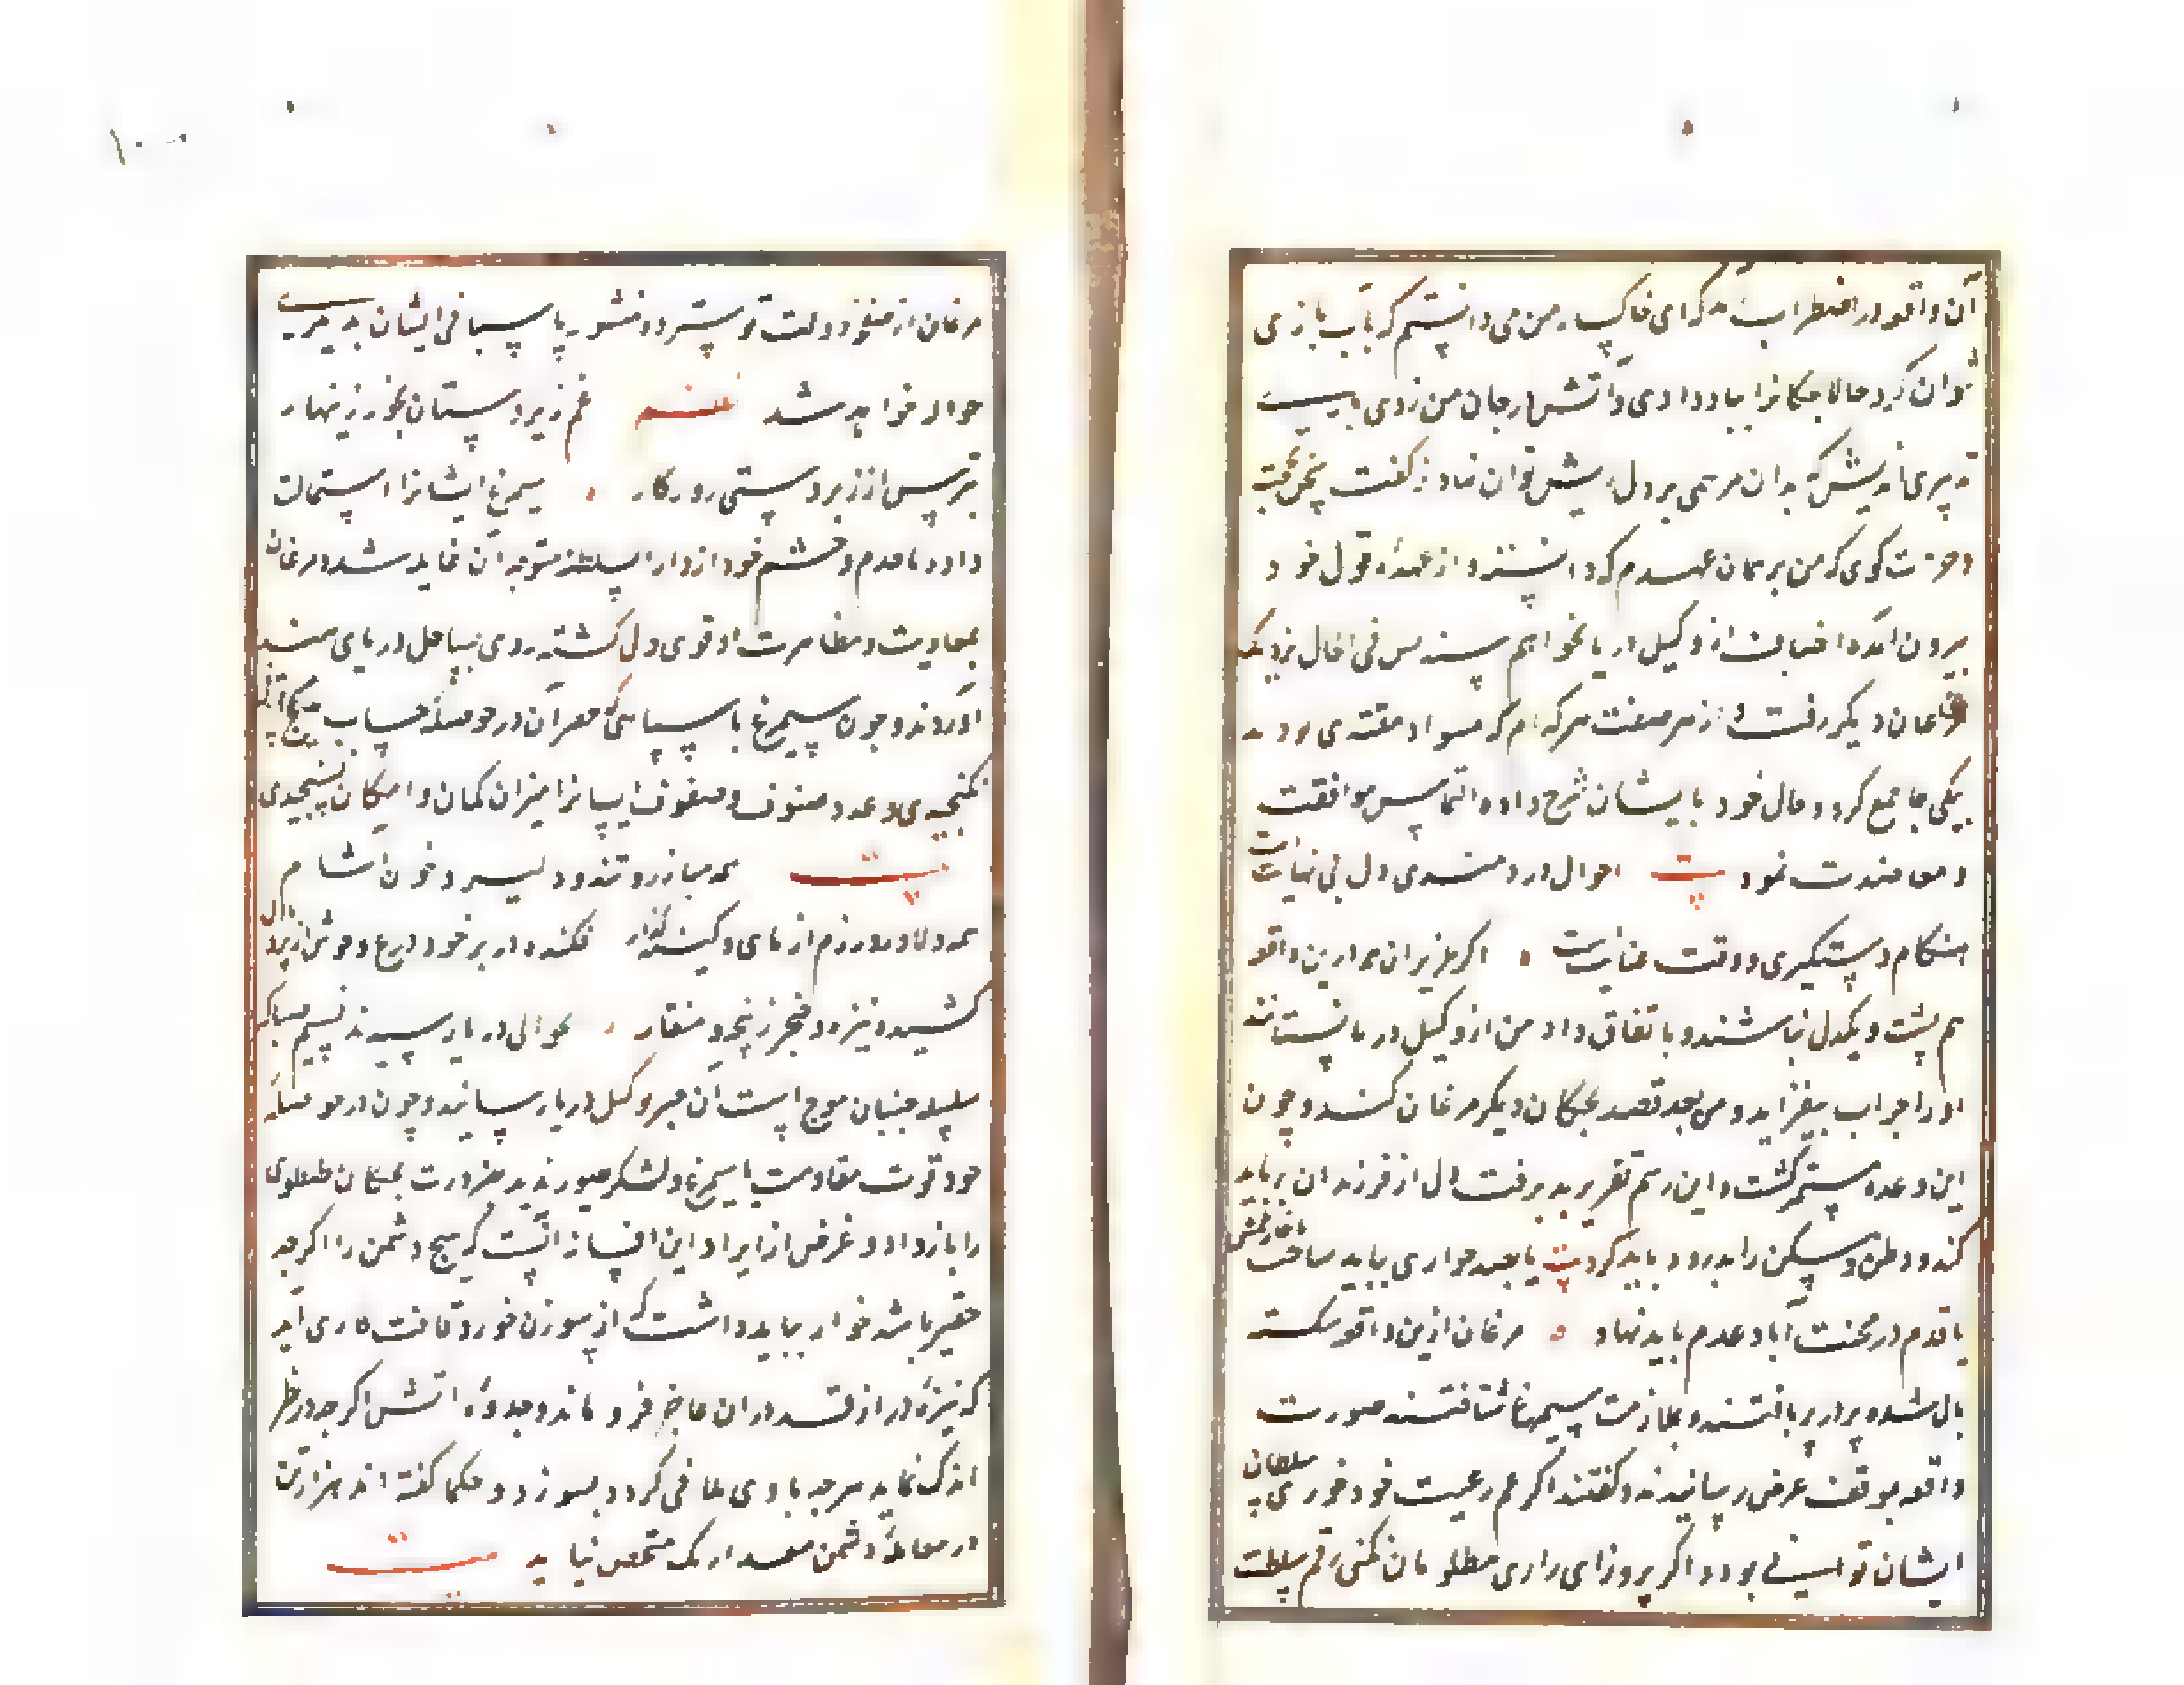 آن واقعه در اضطراب که ای خاکسار من می دانستم که بآب بازی
توان کرد حالا بچکانرا بباد دادی و آتش در جان من زدی باری
تدبیری اندیش که بدان مرهمی بر دل ریش توان نهاد نر گفت سخن بجهت
و حرمت گوی که من بر همان عهدم که دانستند و از عهدهٔ قول خود
بیرون آمده انصاف از وکیل دریا بخواهم ستد پس فی الحال بنزدیک
مرغان دیگر رفت و از هر صنفت هر کدام که پیشوا و مقتدی بودند
بیکی جا جمع کرد و حال خود بایشان شرح داده التماس موافقت
و معاضدت نمود بیت احوال دردمندی دل بی نهایت است
هنگام دستگیری و وقت عنایت است اگر عزیزان در این واقعه
هم پشت و یکدل نباشند و باتفاق داد من از وکیل دریا نستانند
او را جراءت بیفزاید و من بعد قصد بچکان دیگر مرغان کند و چون
این وعده مستمر گشت و این رسم تقریر پذیرفت دل از فرزندان بر باید
کند و وطن و مسکن را بدرود باید کرد بیت یا بصد خواری بباید ساخت با خار
یا قدم در محنت آباد عدم باید نهاد مرغان ازین واقعه شکسته
بال شده پر در پر بافتند و بملازمت سیمرغ شتافتند صورت
واقعه بموقف عرض رسانیدند و گفتند اگر غم رعیت خود خوری سلطان
ایشان توانی بود و اگر پروای زاری مظلومان نکنی رقم سلطنت
مرغان از صفحهٔ دولت تو سترده و منشور پاسبانی ایشان بدیگری
حواله خواهد شد نظم غم زیردستان بخور زینهار
بترس از زبردستی روزگار سیمرغ ایشانرا استمالت
داده با خدم و حشم خود از دار السلطنه متوجه آن شد و مرغان
بمعاونت و مظاهرت او قوی دل گشته روی بساحل دریای هند
آوردند و چون سیمرغ با سپاهی که حصر آن در حوصلهٔ حساب هیچ
نگنجیدی و عدد صنوف و صفوف ایشانرا میزان گمان و امکان نسنجیدی
بیت همه مبارز و تند و دلیر و خون آشام
همه دلاور و رزم آزمای و کینه گذار فکنده در بر خود درع و جوشن از پر و بال
کشیده نیزه و خنجر ز پنجه و منقار بحوالی دریا رسیدند نسیم صبا که
سلسله جنبان موج است آن خبر بوکیل دریا رسانید و چون در حوصلهٔ
خود قوت مقاومت با سیمرغ و لشکر طیور ندید بضرورت بچکان طیطوی
را باز داد و غرض از ایراد این افسانه آنست که هیچ دشمن را اگرچه
حقیر باشد خوار نباید داشت که از سوزن خورد قامت کاری آید
که نیزه دراز قد در آن عاجز فرو ماند و جذوهٔ آتش اگرچه در نظر
اندک نماید هرچه با وی ملاقی گردد بسوزد و حکما گفته اند هزار تن
در معاملهٔ دشمن بمقدار یک شخص نیاید بیت